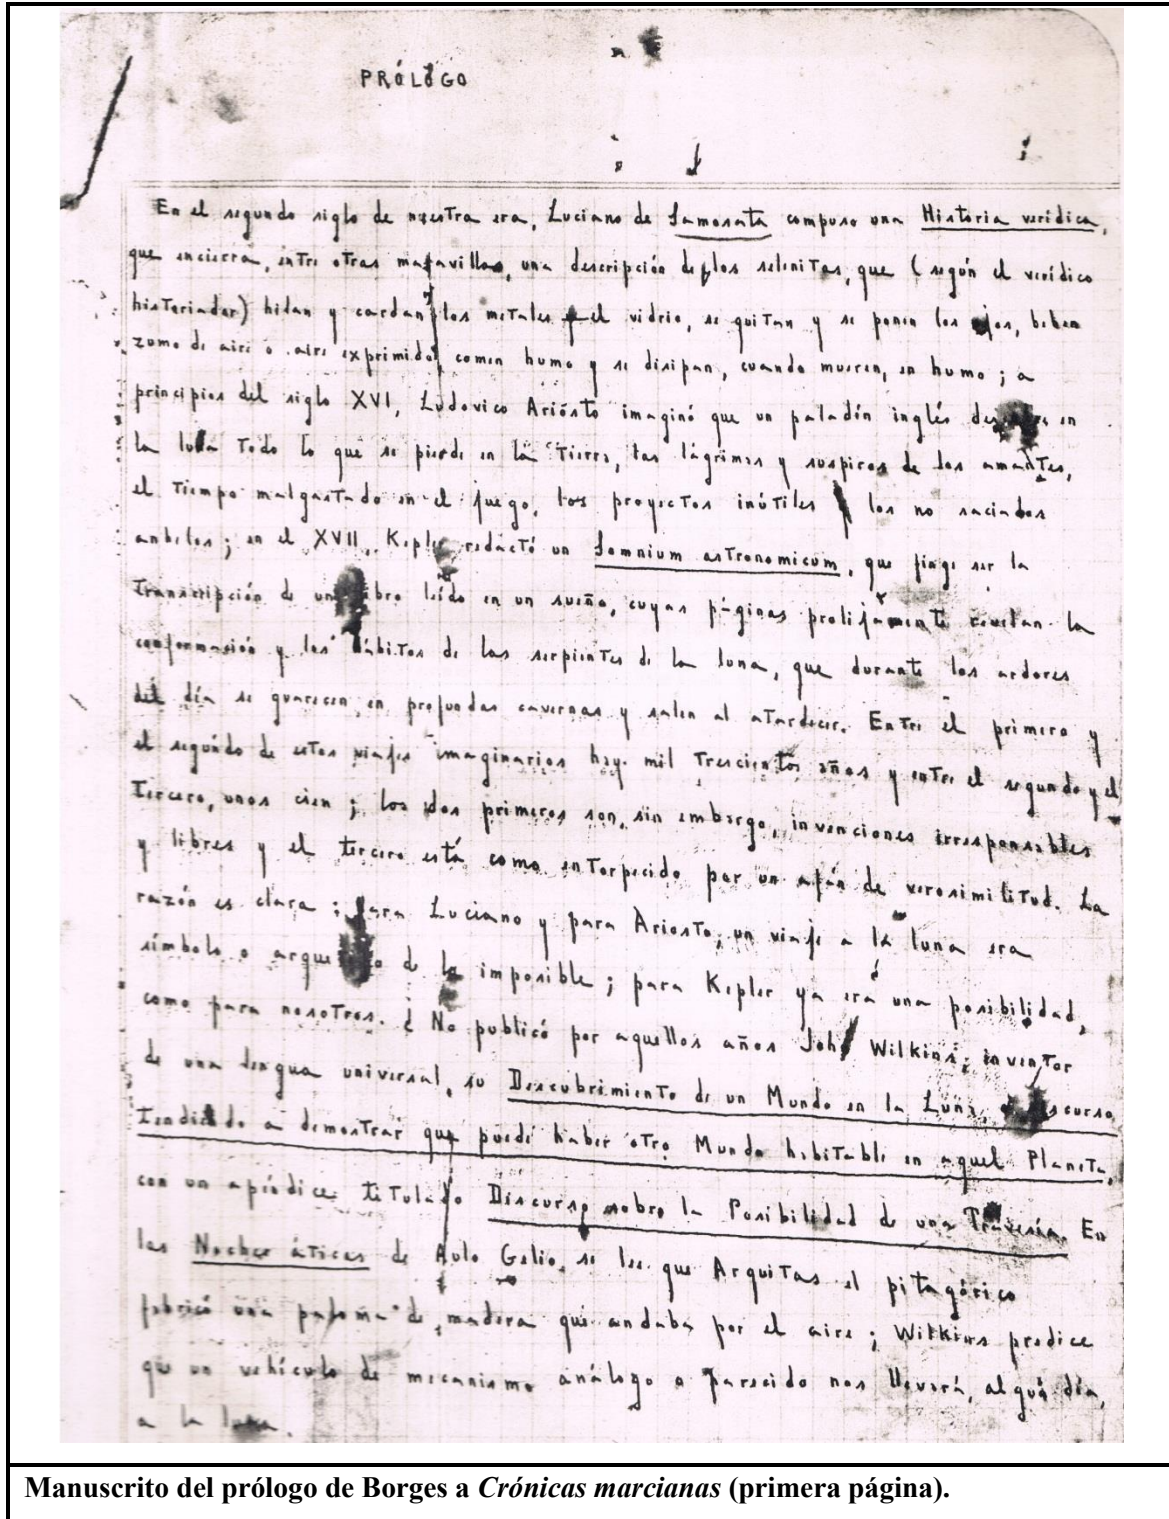 PRÓLOGO
En el segundo siglo de nuestra era, Luciano de Samosata compuso una Historia verídica,
que encierra, entre otras maravillas, una descripción de los selenitas, que (según el verídico
historiador) hilan y cardan los metales y el vidrio, se quitan y se ponen los ojos, beben
zumo de aire o aire exprimido, comen humo y se disipan, cuando mueren, en humo; a
principios del siglo XVI, Ludovico Ariosto imaginó que un paladín inglés descubre en
la luna todo lo que se pierde en la Tierra, las lágrimas y suspiros de los amantes,
el tiempo malgastado en el juego, los proyectos inútiles y los no saciados
anhelos; en el XVII, Kepler redactó un Somnium astronomicum, que finge ser la
transcripción de un libro leído en un sueño, cuyas páginas prolijamente revelan la
conformación y los hábitos de las serpientes de la luna, que durante los ardores
del día se guarecen en profundas cavernas y salen al atardecer. Entre el primero y
el segundo de estos viajes imaginarios hay mil trescientos años y entre el segundo y el
tercero, unos cien; los dos primeros son, sin embargo, invenciones irresponsables
y libres y el tercero está como entorpecido por un afán de verosimilitud. La
razón es clara; para Luciano y para Ariosto, un viaje a la luna era
símbolo o arquetipo de lo imposible; para Kepler ya era una posibilidad,
como para nosotros. ¿No publicó por aquellos años John Wilkins, inventor
de una lengua universal, su Descubrimiento de un Mundo en la Luna, o discurso
tendiente a demostrar que puede haber otro Mundo habitable en aquel Planeta,
con un apéndice titulado Discurso sobre la Posibilidad de una Travesía. En
las Noches áticas de Aulo Gelio, se lee que Arquitas el pitagórico
fabricó una paloma de madera que andaba por el aire; Wilkins predice
que un vehículo de mecanismo análogo o parecido nos llevará, algún día,
a la luna.
Manuscrito del prólogo de Borges a Crónicas marcianas (primera página).